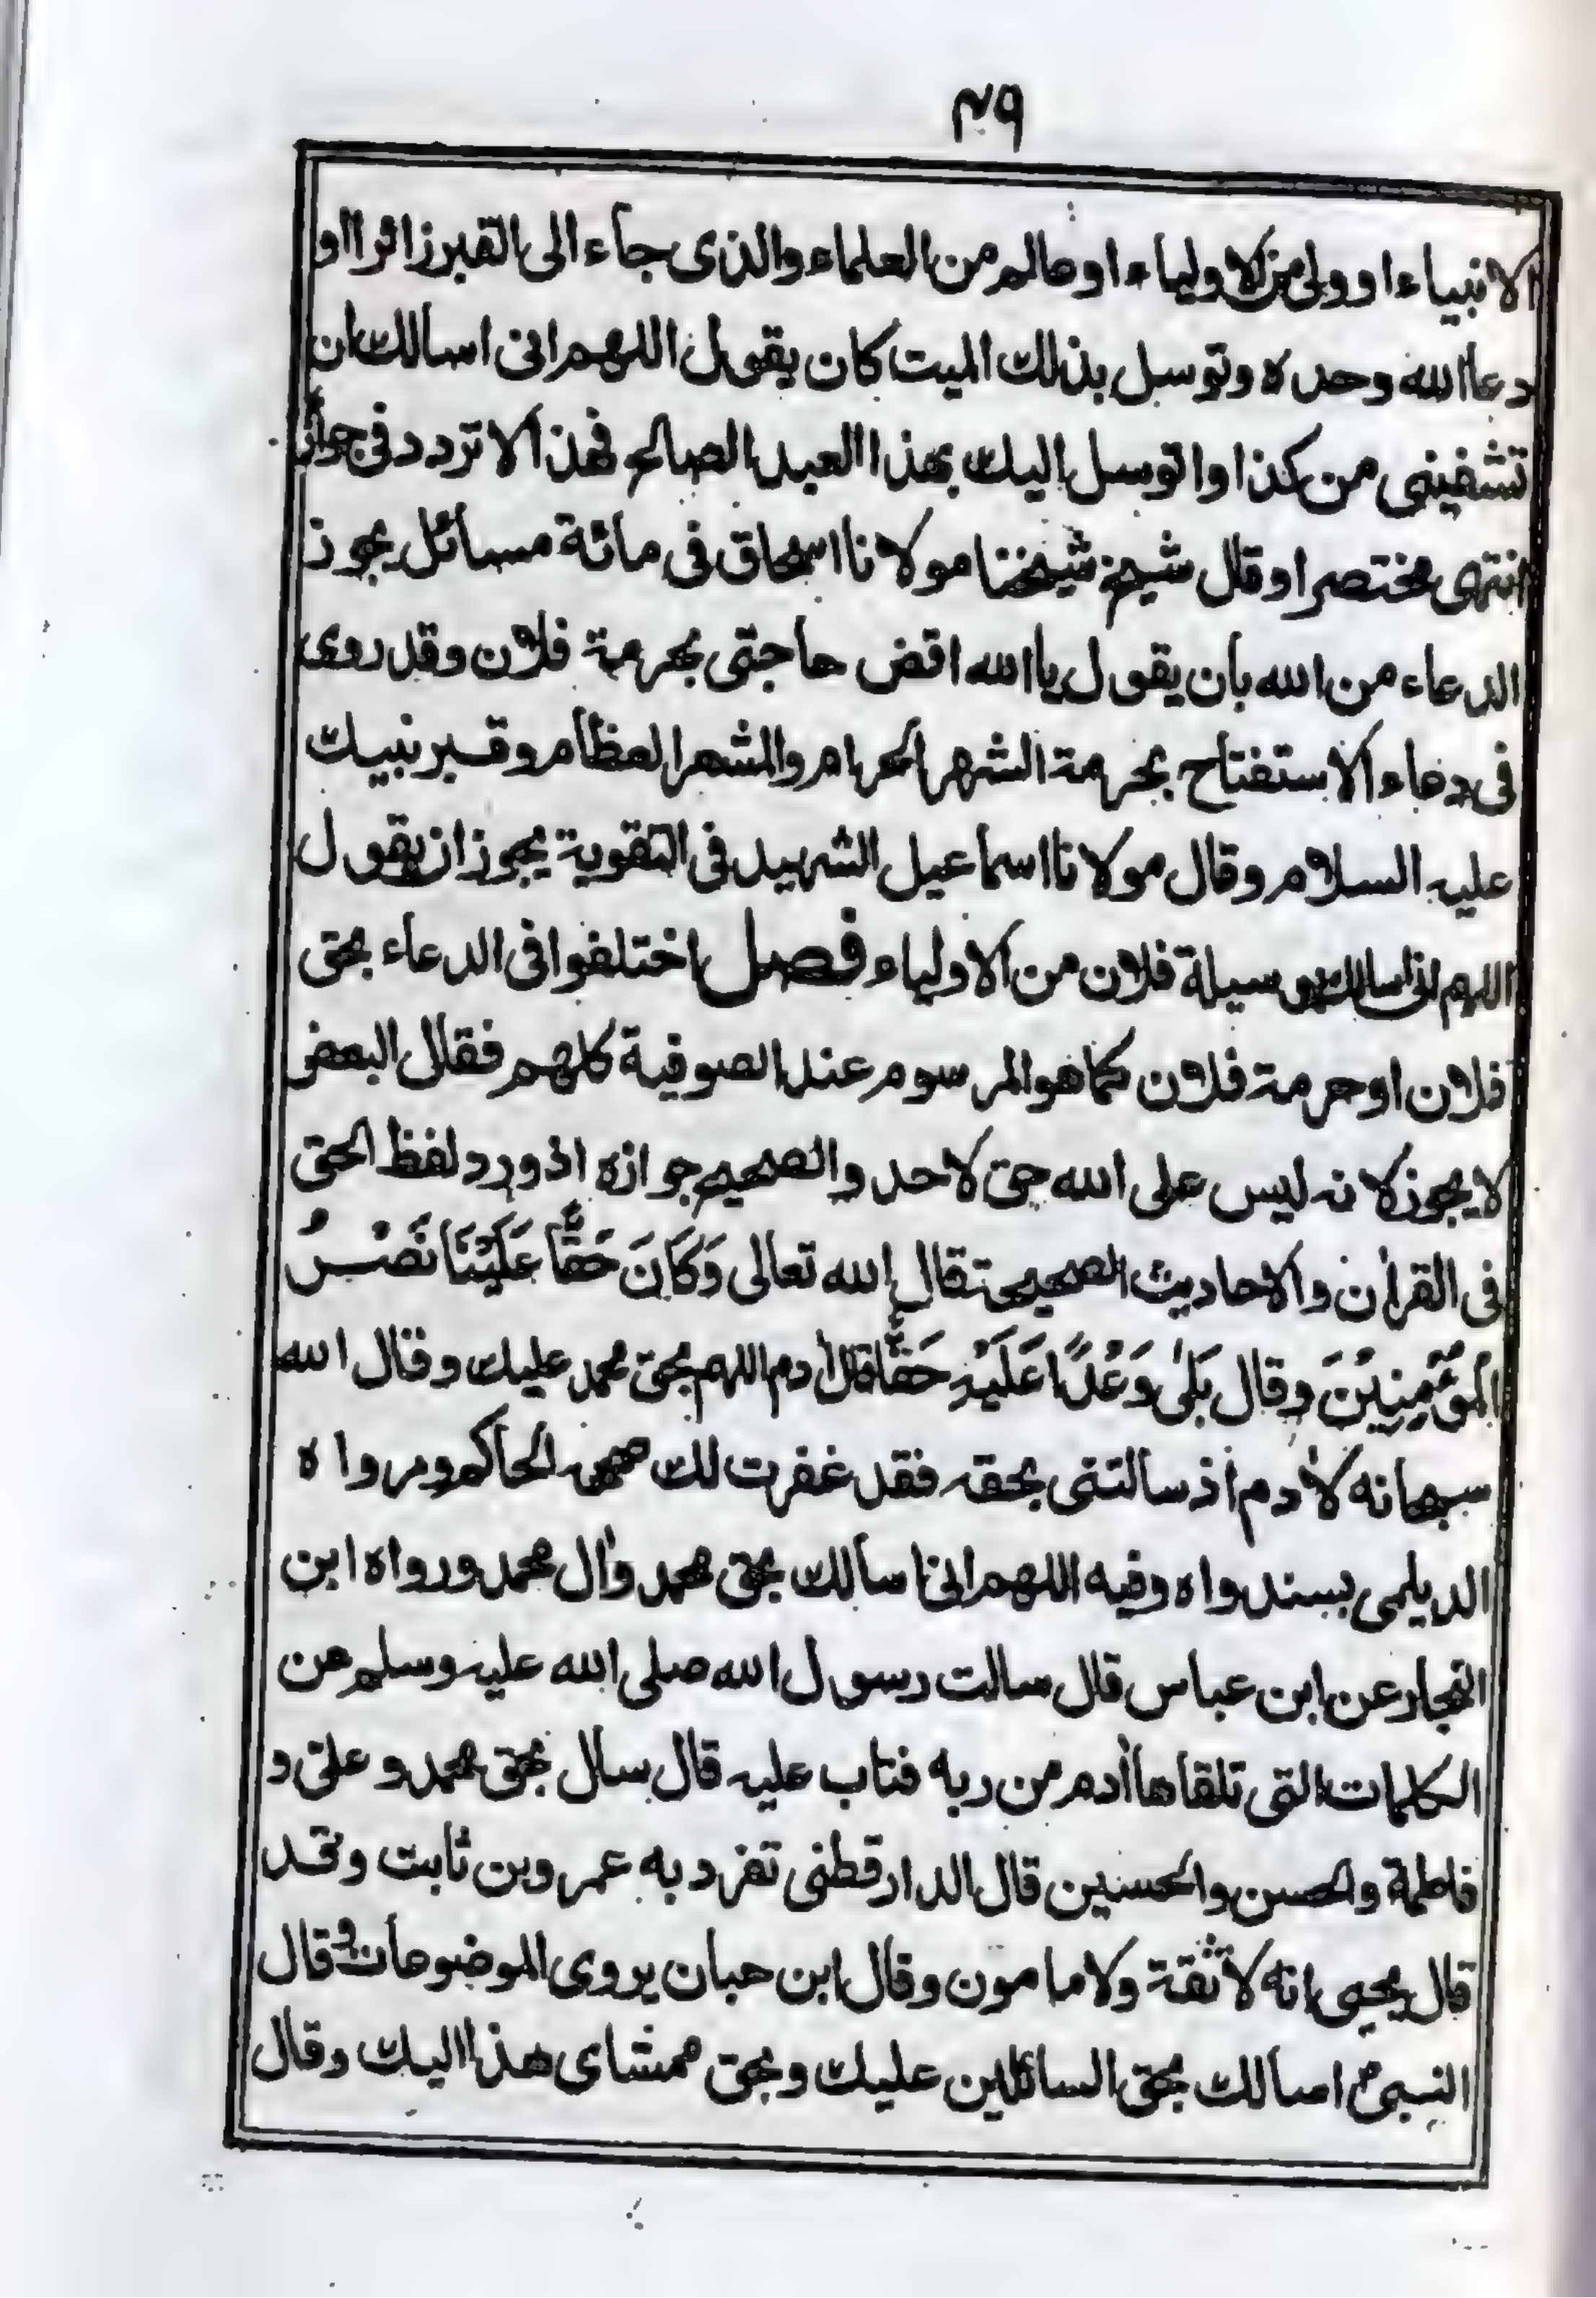 ٤٩
الانبیاء او ولی من الاولیاء او عالم من العلماء والذی جاء الی القبر زائرا او
دعا الله وحده وتوسل بذلك المیت کان یقول اللهم انی اسالك ان
تشفینی من کذا واتوسل الیك بهذا العبد الصالح فهذا لا تردد فی جوازه
انتهی مختصرا وقال شیخ شیخنا مولانا اسحاق فی مائة مسائل یجوز
الدعاء من الله بان یقول یا الله اقض حاجتی بحرمة فلان وقد روی
فی دعاء الاستفتاح بحرمة الشهر الحرام والمشعر العظام وقبر نبیك
علیه السلام وقال مولانا اسماعیل الشهید فی التقویة یجوز ان یقول
اللهم انی اسالك بوسیلة فلان من الاولیاء فصل اختلفوا فی الدعاء بحق
فلان او حرمة فلان کما هو المرسوم عند الصوفیة کلهم فقال البعض
لا یجوز لانه لیس علی الله حق لاحد والصحیح جوازه اذ ورد لفظ الحق
فی القراٰن والاحادیث الصحیحة قال الله تعالی وَکَانَ حَقًّا عَلَیْنَا نَصْرُ
الْمُؤْمِنِیْنَ وقال بَلٰی وَعْدًا عَلَیْهِ حَقًّا قال اٰدم اللهم بحق محمد علیك وقال الله
سبحانه لاٰدم اذ سالتنی بحقه فقد غفرت لك صححه الحاکم ورواه
الدیلمی بسند واه وفیه اللهم انی اسالك بحق محمد واٰل محمد ورواه ابن
النجار عن ابن عباس قال سالت رسول الله صلی الله علیه وسلم عن
الکلمات التی تلقاها اٰدم من ربه فتاب علیه قال سال بحق محمد و علی و
فاطمة والحسن والحسین قال الدارقطنی تفرد به عمرو بن ثابت وقد
قال یحیی انه لا ثقة ولا مامون وقال ابن حبان یروی الموضوعات وقال
النبی ؐ اسالك بحق السائلین علیك وبحق ممشای هذا الیك وقال